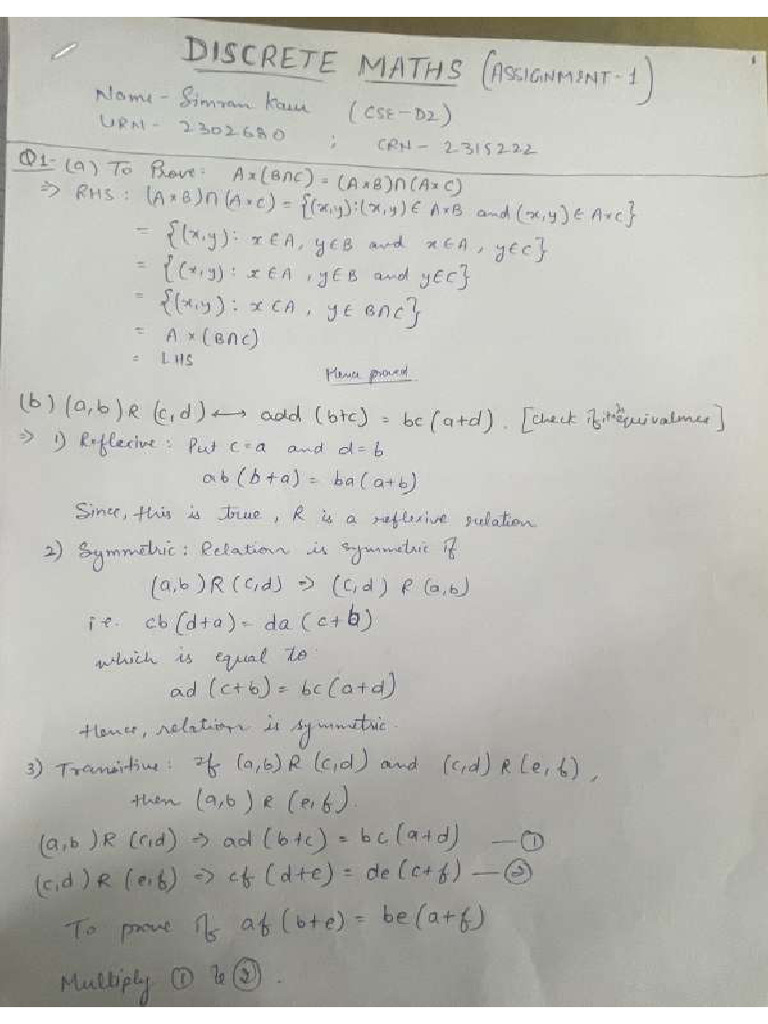 DISCRETE MATHS (ASSIGNMENT-1)
Name - Simran Kaur (CSE-D2)
URN - 2302680 ; CRN - 2315222
Q1- (a) To Prove: A×(B∩C) = (A×B)∩(A×C)
⇒ RHS: (A×B)∩(A×C) = {(x,y):(x,y)∈ A×B and (x,y)∈ A×C}
= {(x,y): x∈A, y∈B and x∈A, y∈C}
= {(x,y): x∈A, y∈B and y∈C}
= {(x,y): x∈A, y∈ B∩C}
= A×(B∩C)
= LHS
Hence proved
(b) (a,b) R (c,d) ↔ add (b+c) = bc (a+d). [check if equivalence]
⇒ 1) Reflexive: Put c=a and d=b
ab(b+a) = ba(a+b)
Since, this is true, R is a reflexive relation
2) Symmetric: Relation is symmetric if
(a,b) R (c,d) ⇒ (c,d) R (a,b)
i.e. cb(d+a) = da(c+b)
which is equal to
ad(c+b) = bc(a+d)
Hence, relation is symmetric.
3) Transitive: If (a,b) R (c,d) and (c,d) R (e,f),
then (a,b) R (e,f).
(a,b) R (c,d) ⇒ ad(b+c) = bc(a+d) — ①
(c,d) R (e,f) ⇒ cf(d+e) = de(c+f) — ②
To prove if af(b+e) = be(a+f)
Multiply ① & ②.